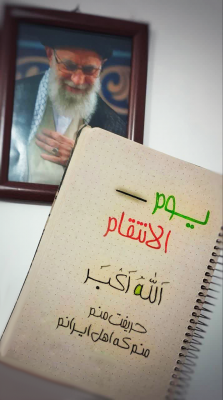 يوم
الانتقام
اَللّٰهُ اَكْبَر
حریفت منم
منم که اهل ایرانم